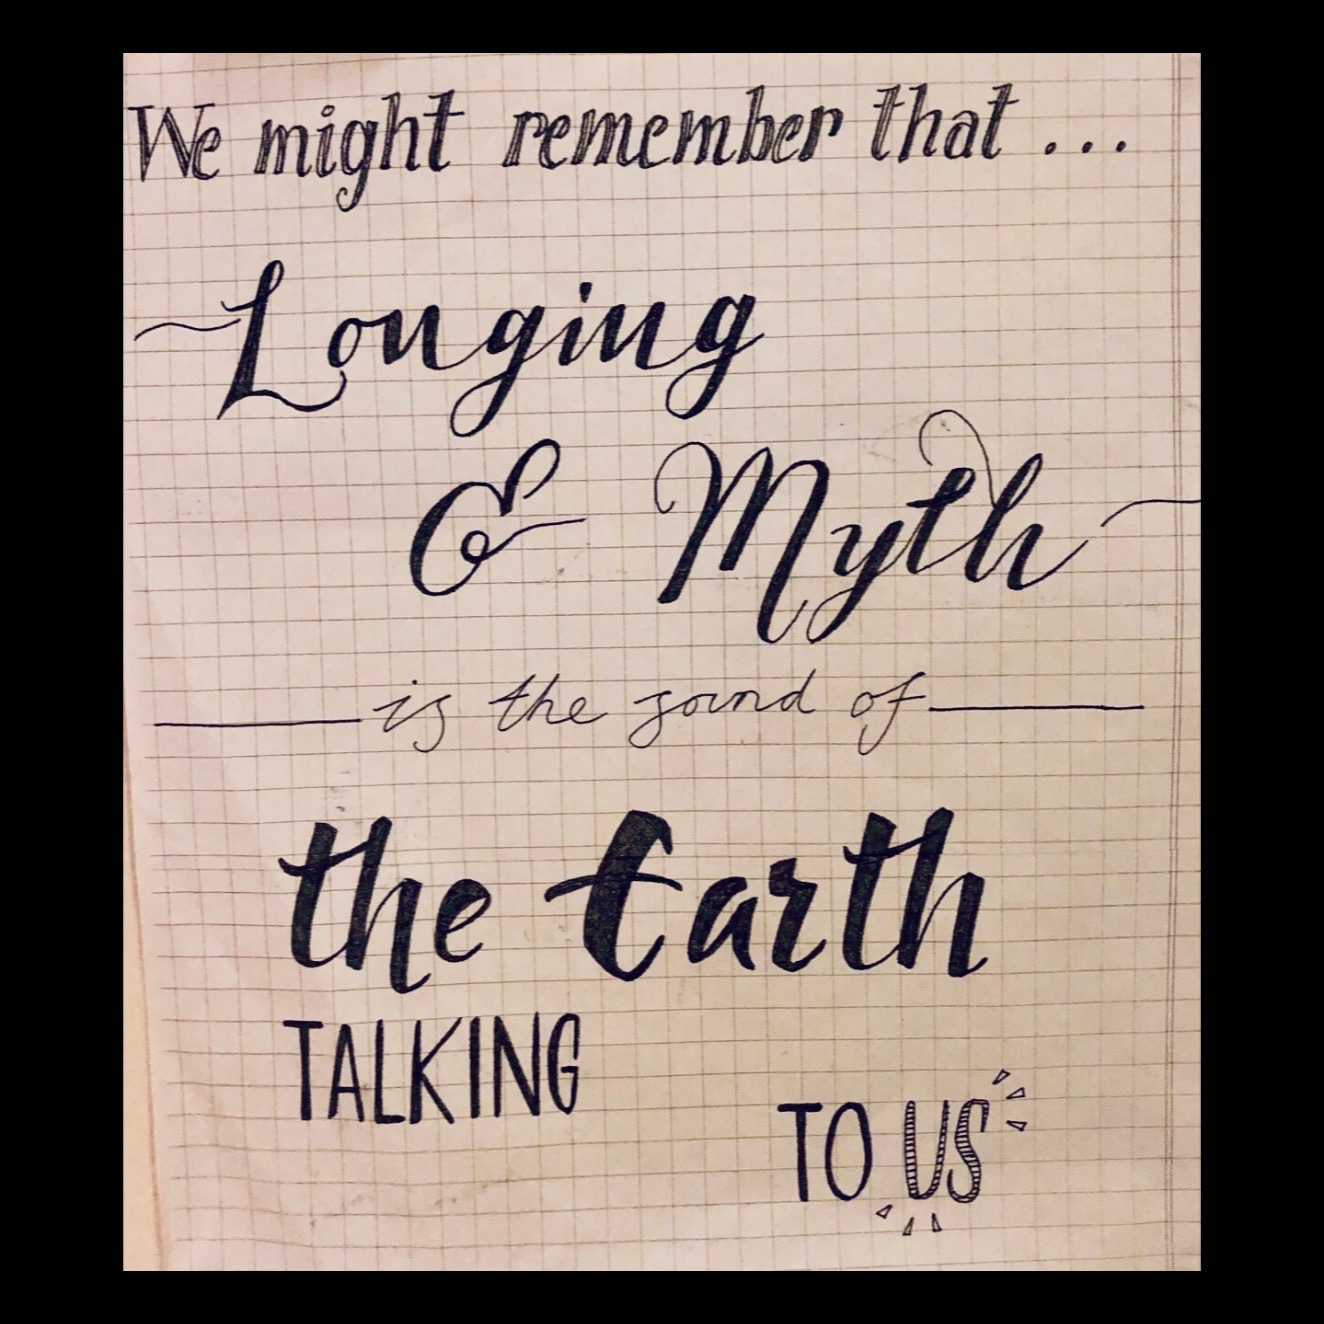 We might remember that ...
Longing
& Myth
is the sound of
the Earth
TALKING
TO US